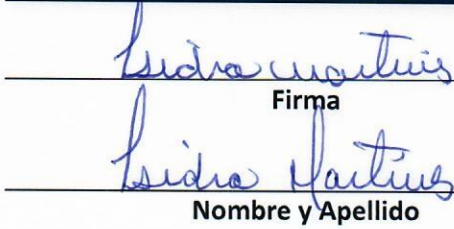 Isidra Martinez
Firma
Isidra Martinez
Nombre y Apellido